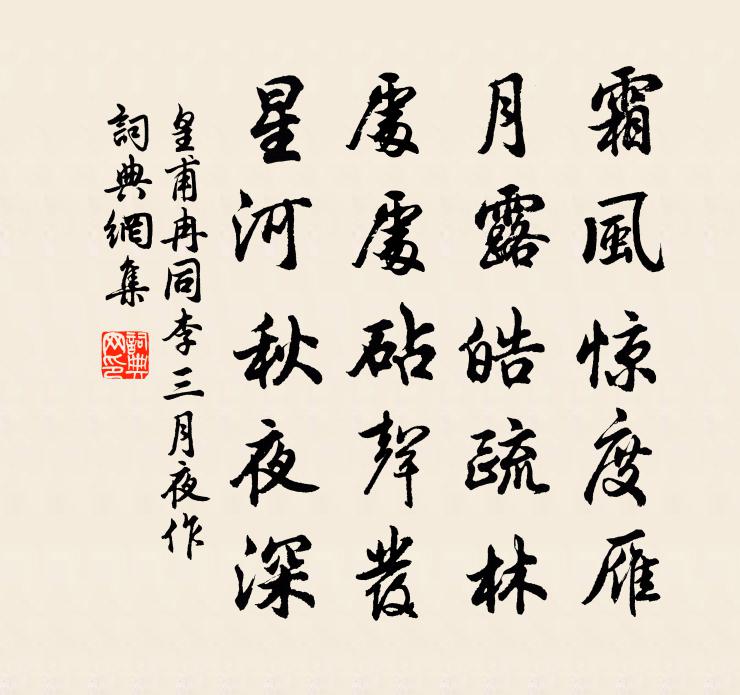 霜風惊度雁
月露皓疏林
處處砧聲發
星河秋夜深
皇甫冉同李三月夜作
詞典網集
詞典网印